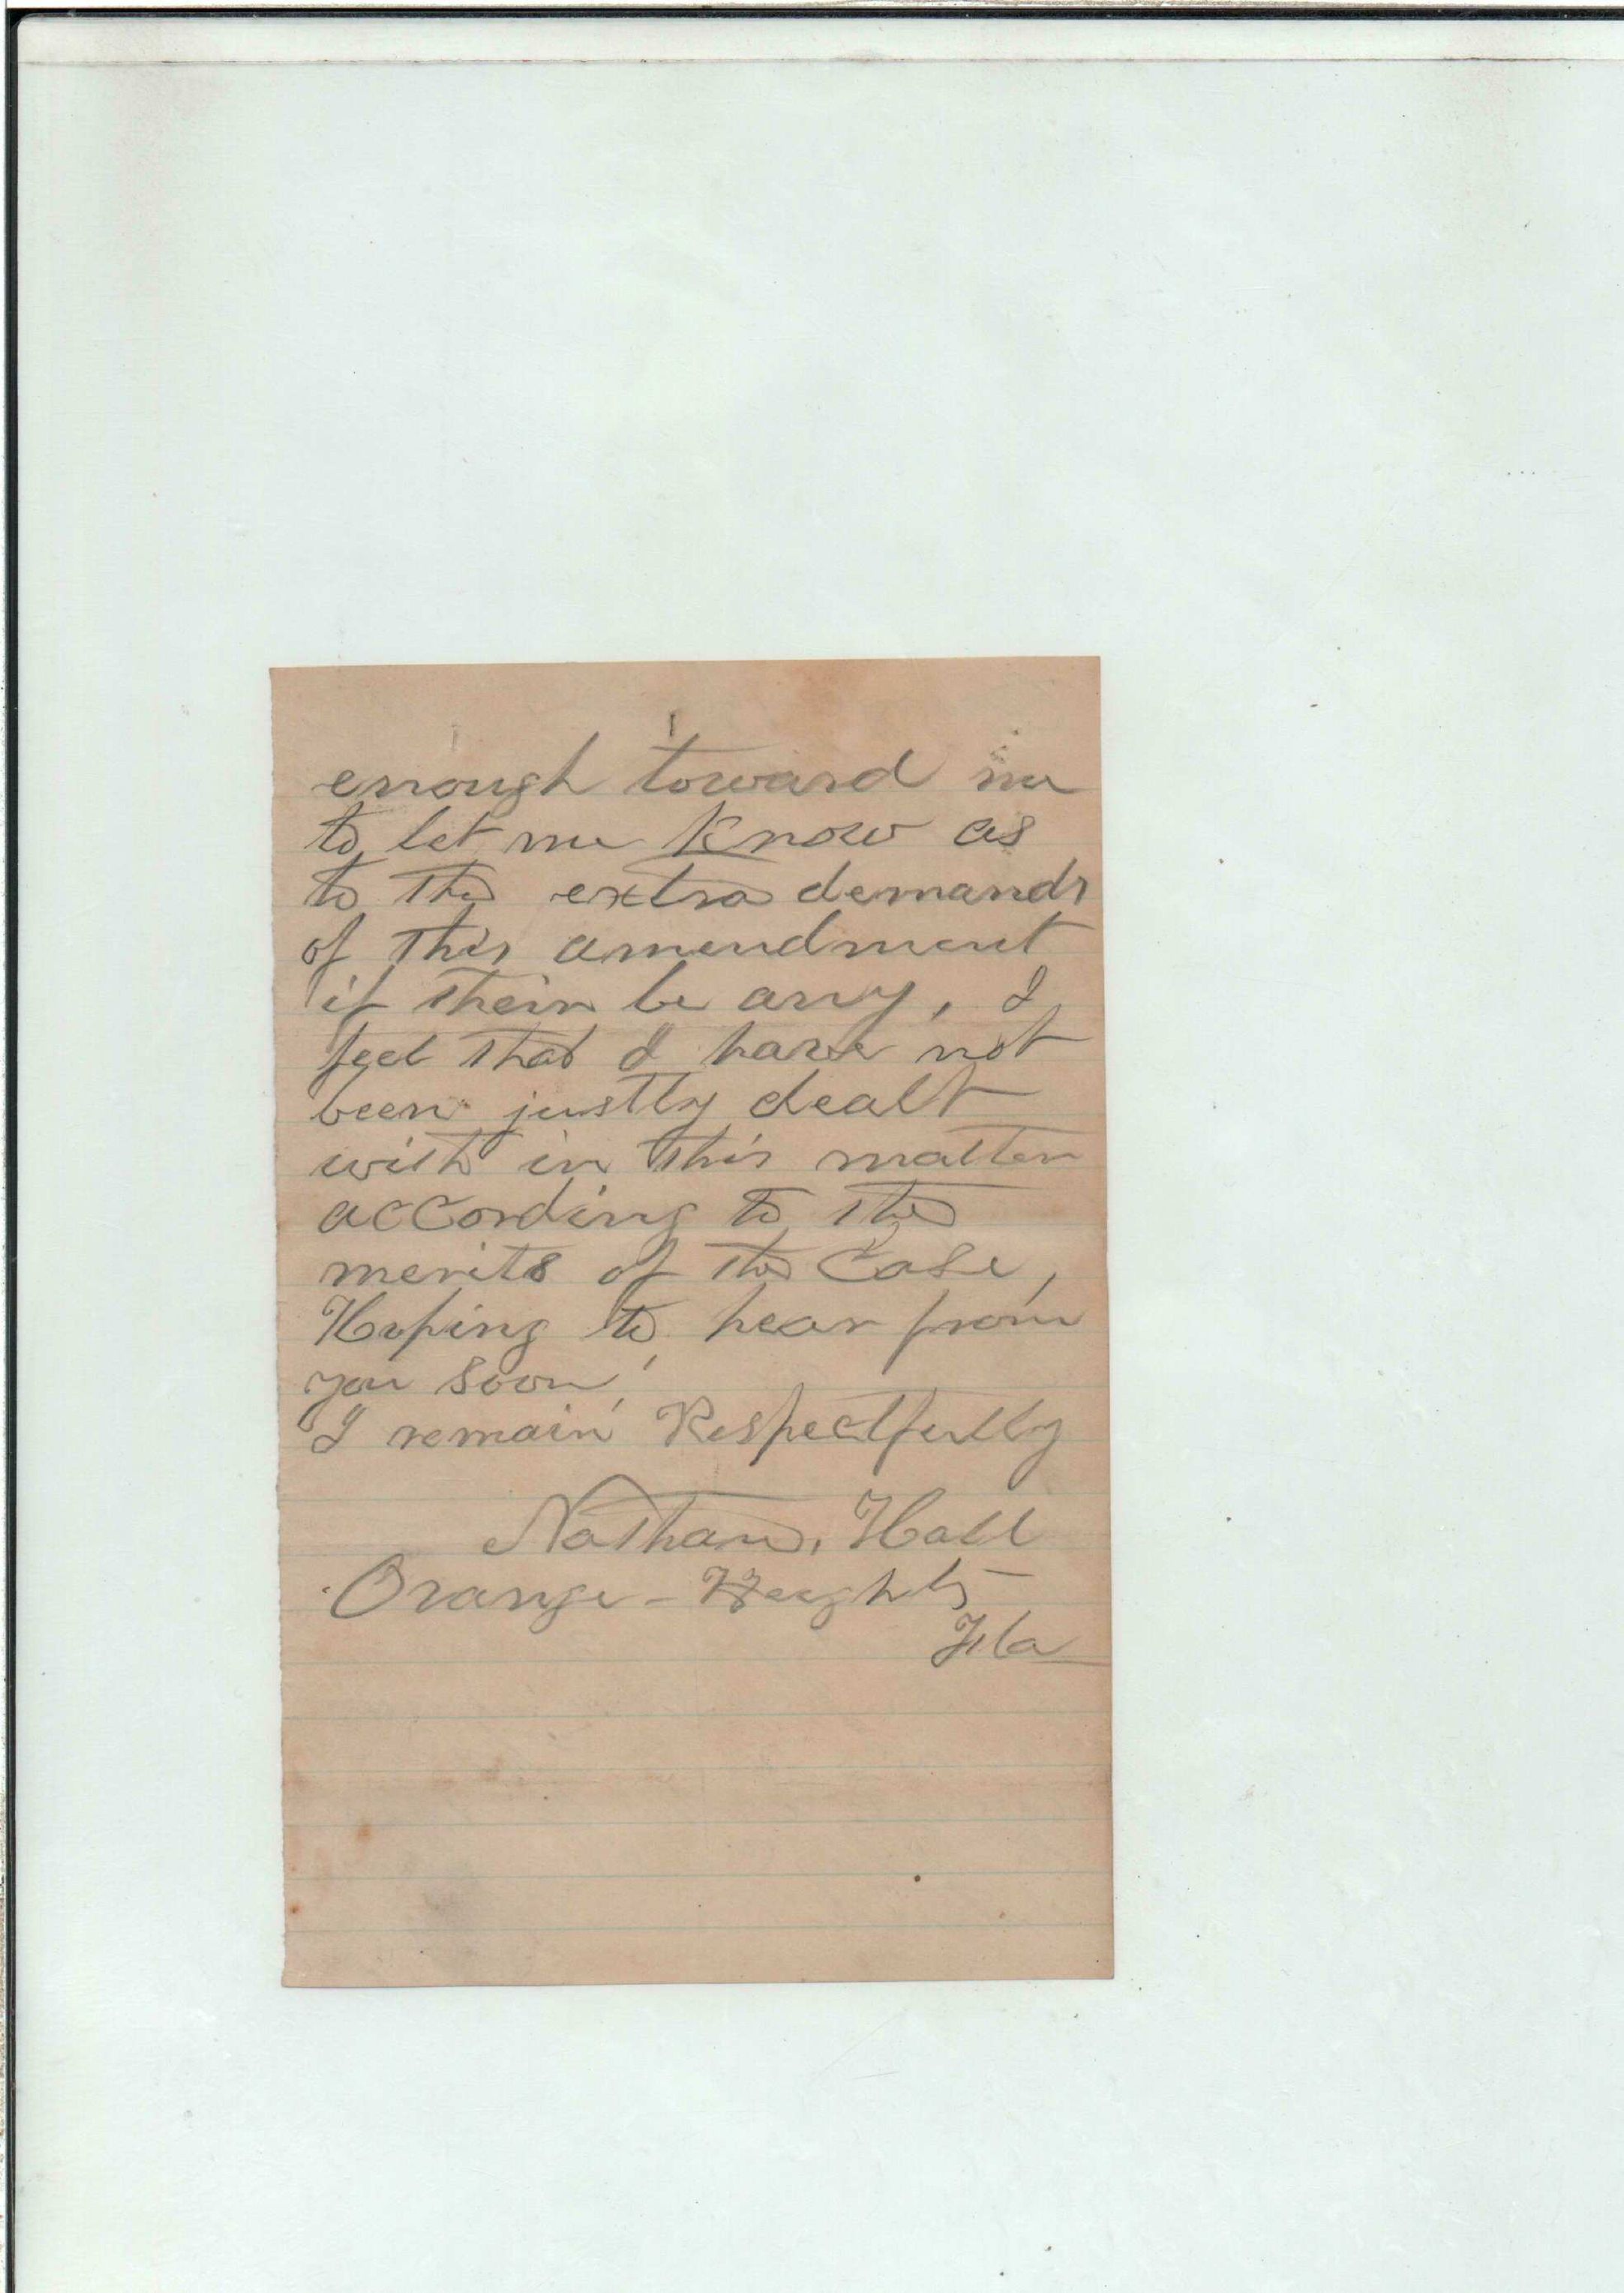 enough toward me
to let me know as
to the extra demands
of this amendment
if their be any, I
feel that I have not
been justly dealt
with in this matter
according to the
merits of the Case,
Hoping to hear from
you soon,
I remain Respectfully
Nathan, Hall
Orange-Heights
Fla